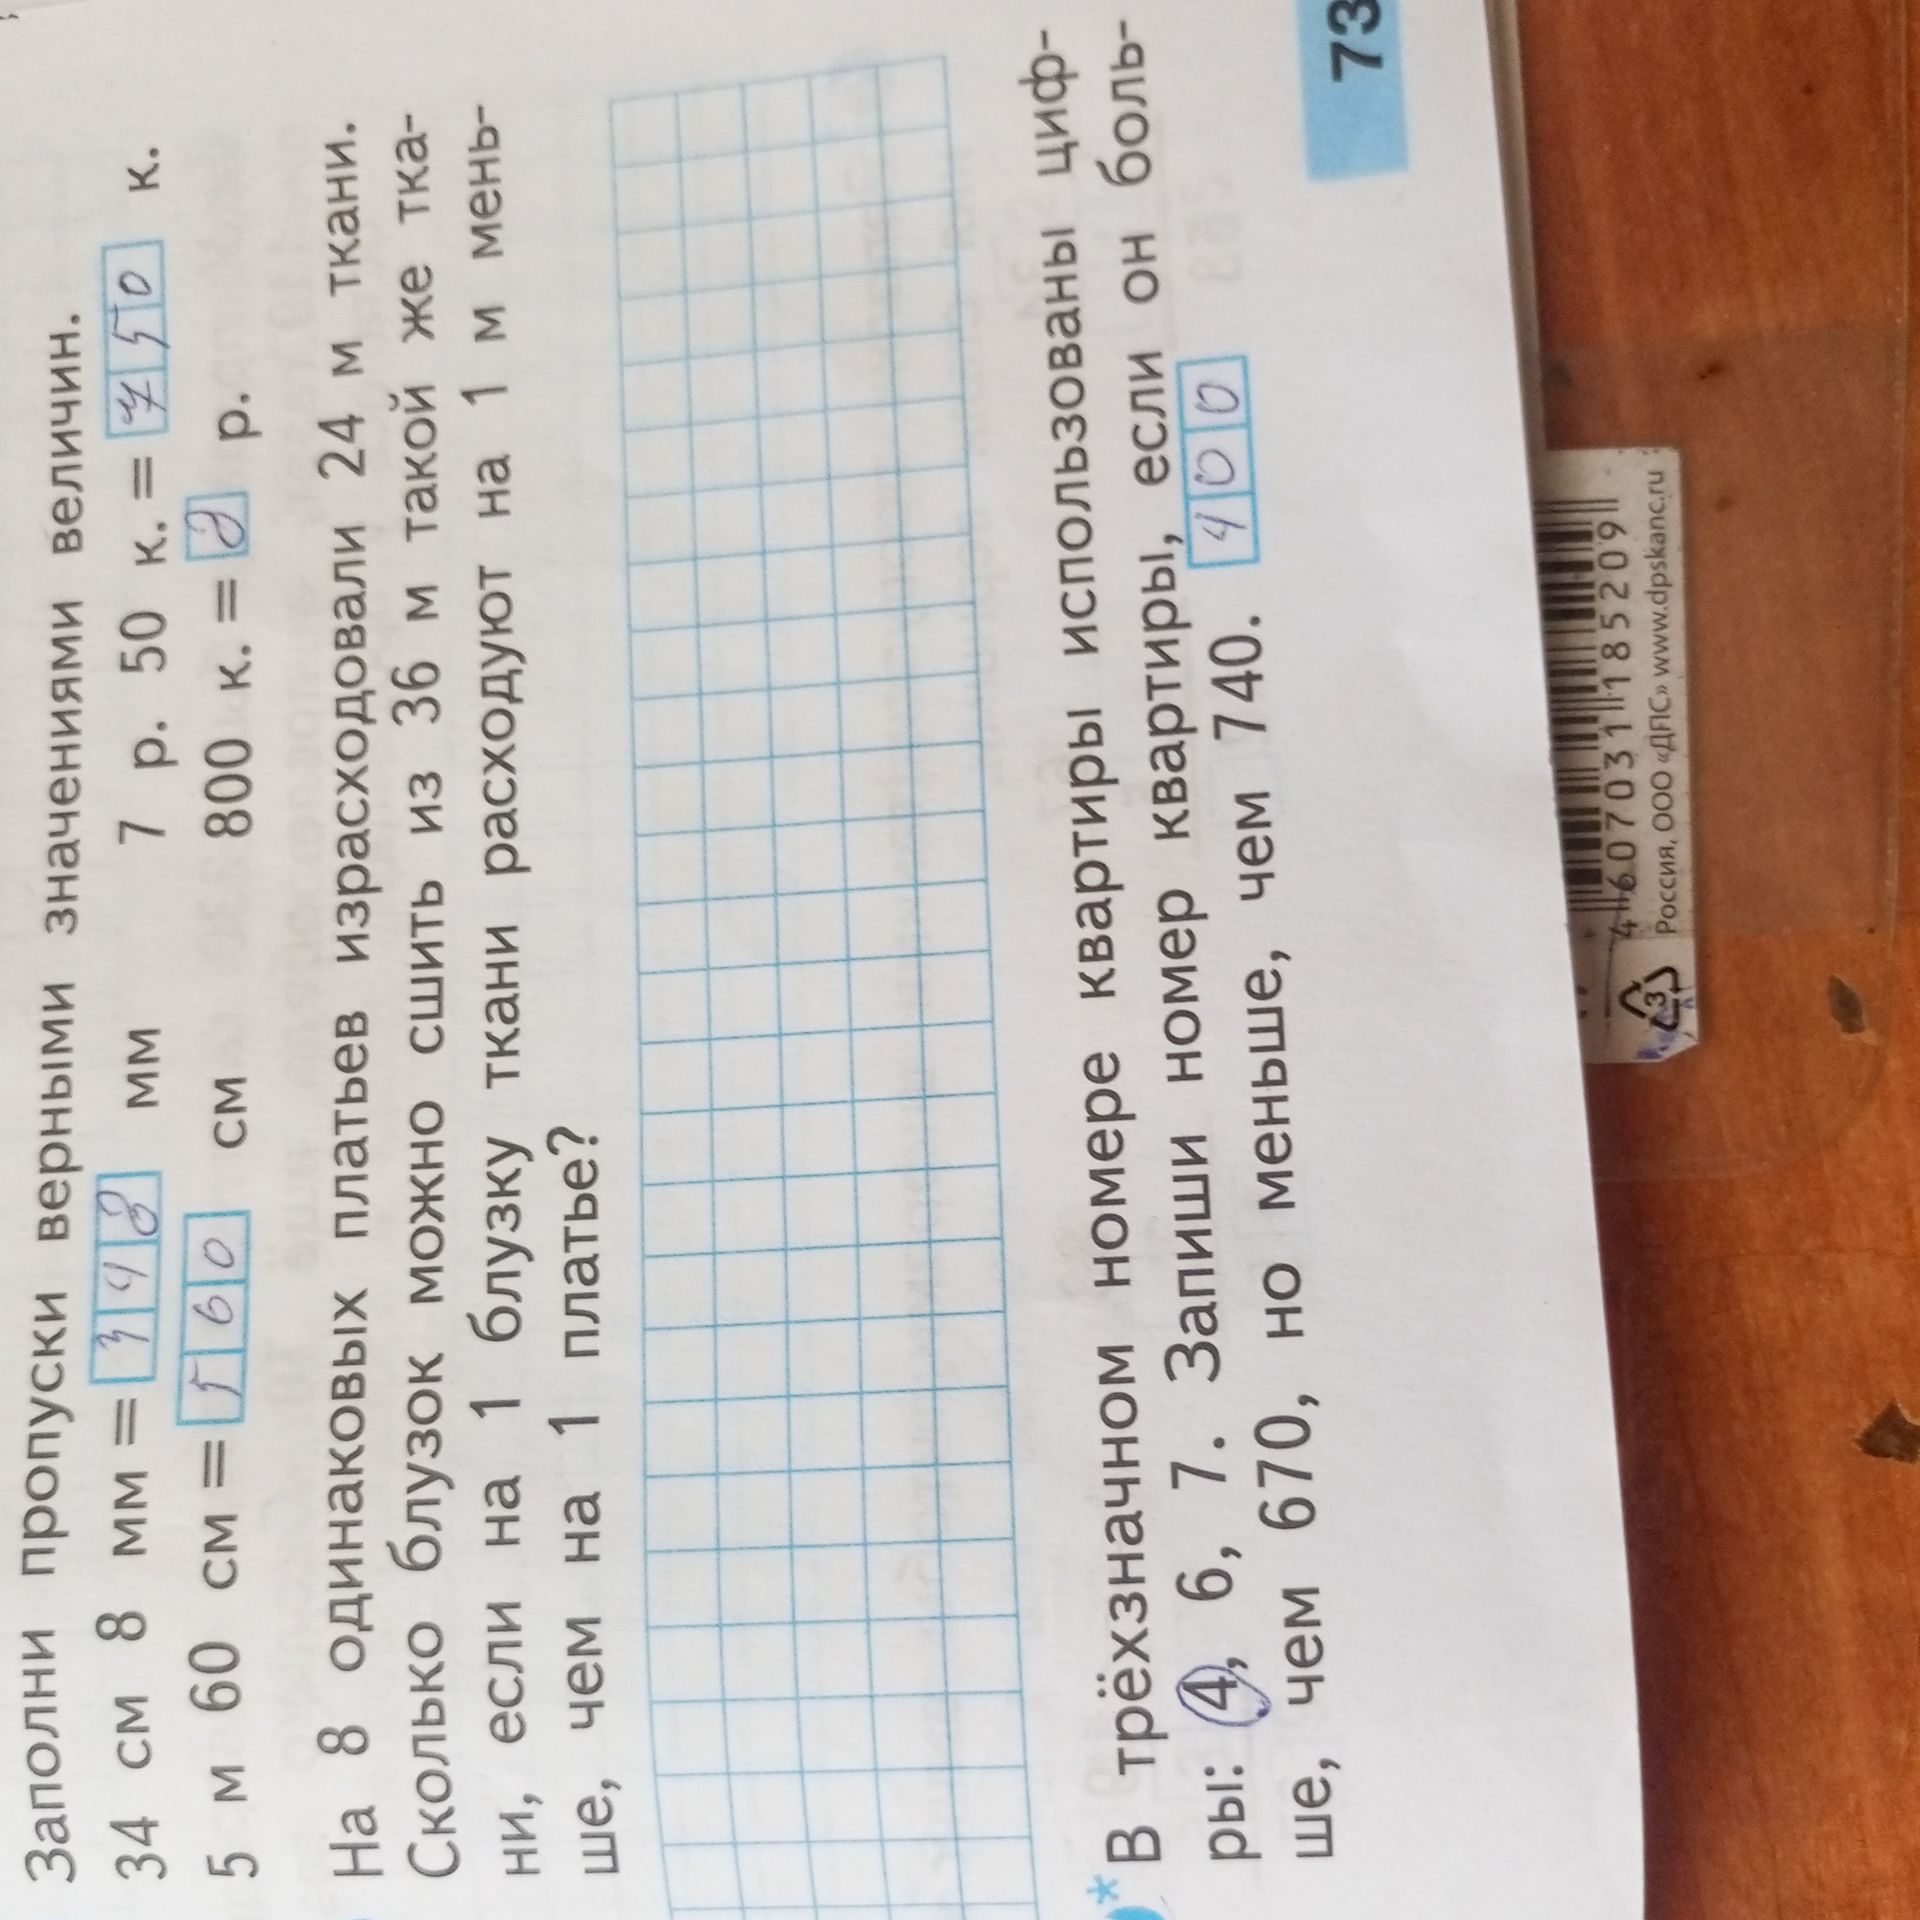 Заполни пропуски верными значениями величин.
34 см 8 мм = 348 мм 7 р. 50 к. = 750 к.
5 м 60 см = 560 см 800 к. = 8 р.
На 8 одинаковых платьев израсходовали 24 м ткани.
Сколько блузок можно сшить из 36 м такой же тка-
ни, если на 1 блузку ткани расходуют на 1 м мень-
ше, чем на 1 платье?
* В трёхзначном номере квартиры использованы циф-
ры: 4, 6, 7. Запиши номер квартиры, если он боль-
ше, чем 670, но меньше, чем 740. 400
73
4 607031 185209
Россия, ООО «ДПС» www.dpskanc.ru
3